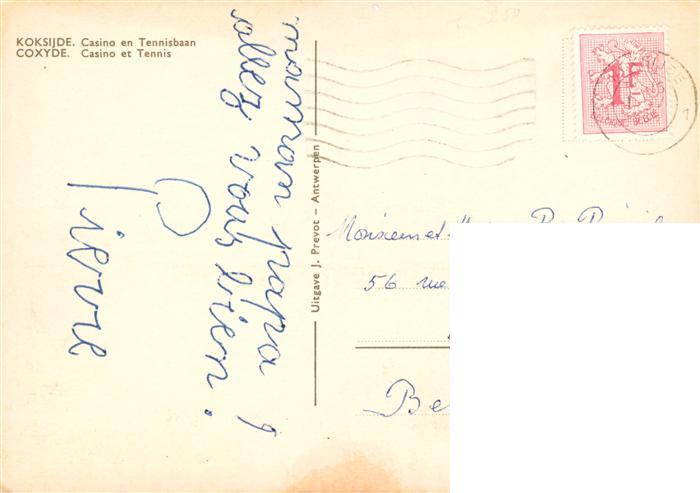 KOKSIJDE. Casino en Tennisbaan
COXYDE. Casino et Tennis
maman papa !
allez vous bien.
Pierre
Uitgave J. Prevot – Antwerpen
1F
BELGIQUE BELGIË
Monsieur et
56 rue
Be